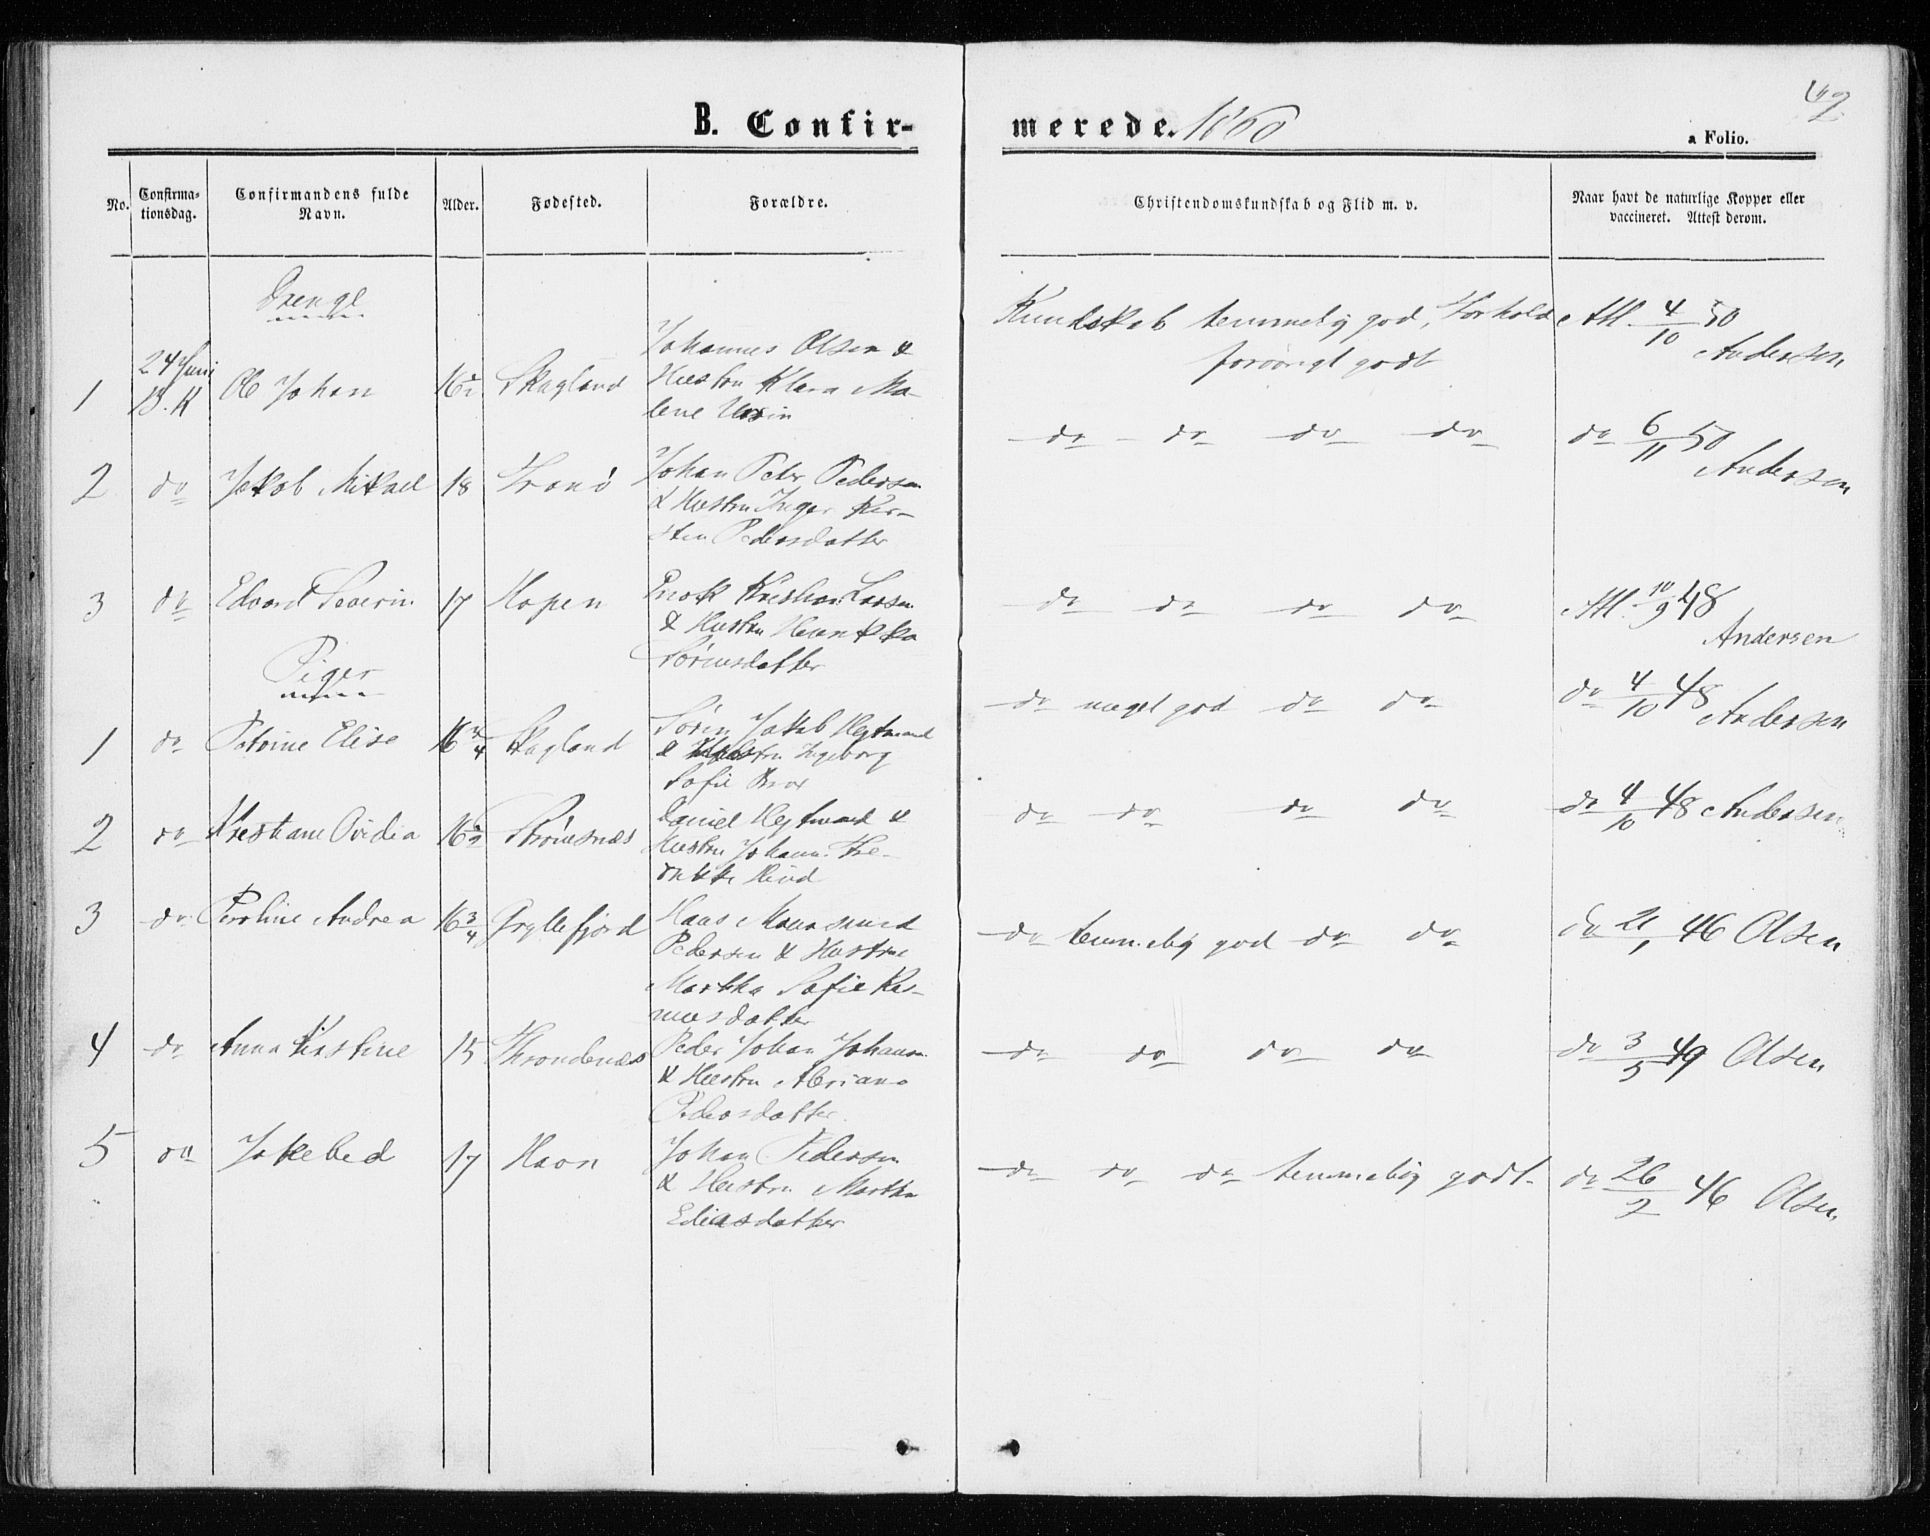 B. Confir-
merede. 1860
42
a Folio.
No.
Confirma-
tionsdag.
Confirmandens fulde
Navn.
Alder.
Fødested.
Forældre.
Christendomskundskab og Flid m. v.
Naar havt de naturlige Kopper eller
vaccineret. Attest derom.
Drenge
1 24 Juni B.K Ole Johan 16½ Skagland
Johannes Olsen &
Hustru Klara Ma-
lene Ursin
Kundskab temmelig god, Forhold
forøvrigt godt
Att. 4/10 50
Andersen
2 do Jakob Mikael 18 Tranø
Johan Peter Pedersen
& Hustru Inger Kir-
sten Pedersdatter
do do do do
do 6/11 50
Andersen
3 do Edvard Severin 17 Hopen
Enok Kristian Larsen
& Hustru Henrikka
Sørensdatter
do do do do
Att. 10/9 48
Andersen
Piger
1 do Petrine Elise 16¾ Skagland
Sørin Jakob Hejtmand
& Hustru Ingeborg
Sofie
do meget god do do
do 4/10 48
Andersen
2 do Kristiane Ovidia 16½
Daniel Hejtmand &
Hustru Johanna Fre-
drikke Hind
do do do do
do 4/10 48 Andersen
3 do Peroline Andrea 16¾ Gryllefjord
Hans
Pedersen & Hustru
Martha Sofie Ras-
musdatter
do temmelig god do do
do 46 Olsen
4 do Anna Kirstine 15 Throndenæs
Peder Johan Johansen
& Hustru Abriana
Pedersdatter
do do do do
do 3/5 49 Olsen
5 do Jokebed 17 Havn
Johan Pedersen
& Hustru Martha
Eliasdatter
do do do temmelig godt.
do 26/2 46 Olsen